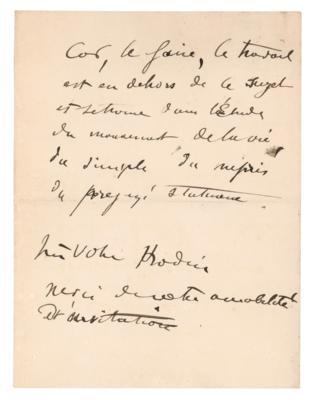 Car, le faire, le travail
est en dehors de le sujet
et se trouve dans l'Étude
du mouvement de la vie
du simple du mépris
du préjugé statuaire
votre Rodin
merci de votre amabilité
et invitation